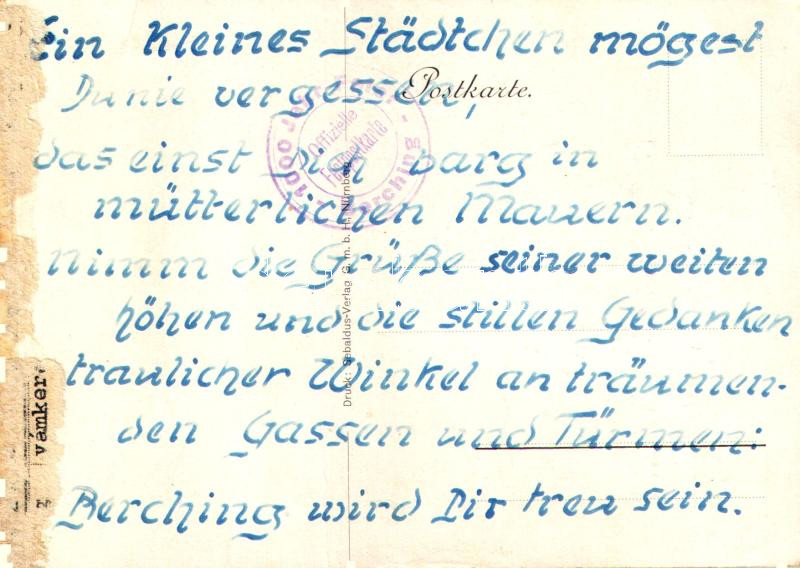 Ein Kleines Städtchen mögest
Du nie vergessen,
Postkarte.
das einst Dich barg in
mütterlichen Mauern.
nimm die Grüße seiner weiten
höhen und die stillen Gedanken
traulicher Winkel an träumen-
den Gassen und Türmen:
Berching wird Dir treu sein.
1000 Jahr
Berching
Offizielle
Festpostkarte
Druck: Sebaldus-Verlag G. m. b. H., Nürnberg
vamker